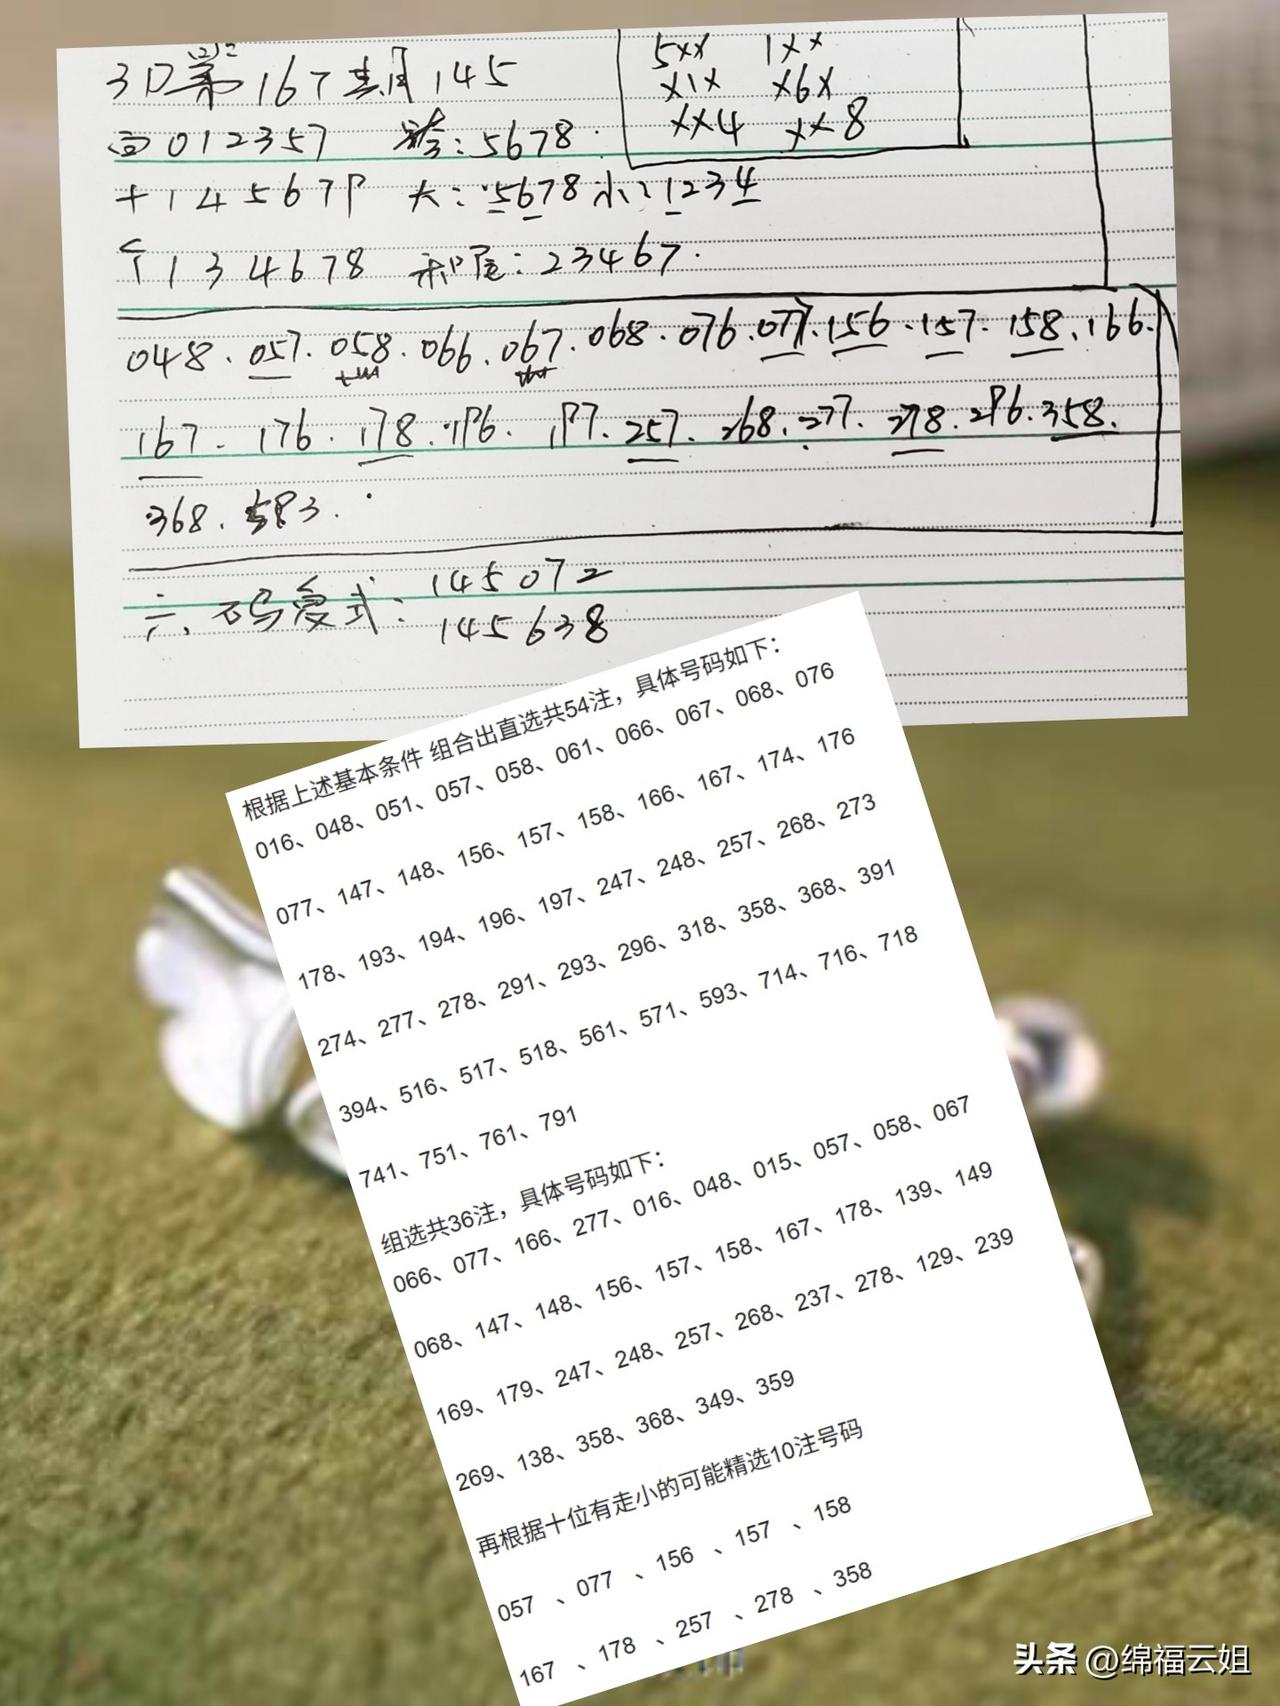 3D第167期145
5×× 1××
×1× ×6×
××4 ××8
百012357 跨:5678
十145679 大:5678 小:1234
个134678 和尾:23467.
048.057.058.066.067.068.076.077.156.157.158.166.
167.176.178.196.197.257.268.277.278.296.358.
368.593.
六码复式:145072
145638
根据上述基本条件 组合出直选共54注,具体号码如下:
016、048、051、057、058、061、066、067、068、076
077、147、148、156、157、158、166、167、174、176
178、193、194、196、197、247、248、257、268、273
274、277、278、291、293、296、318、358、368、391
394、516、517、518、561、571、593、714、716、718
741、751、761、791
组选共36注,具体号码如下:
066、077、166、277、016、048、015、057、058、067
068、147、148、156、157、158、167、178、139、149
169、179、247、248、257、268、237、278、129、239
269、138、358、368、349、359
再根据十位有走小的可能精选10注号码
057 、077 、156 、157 、158
167 、178 、257 、278 、358
头条 @绵福云姐